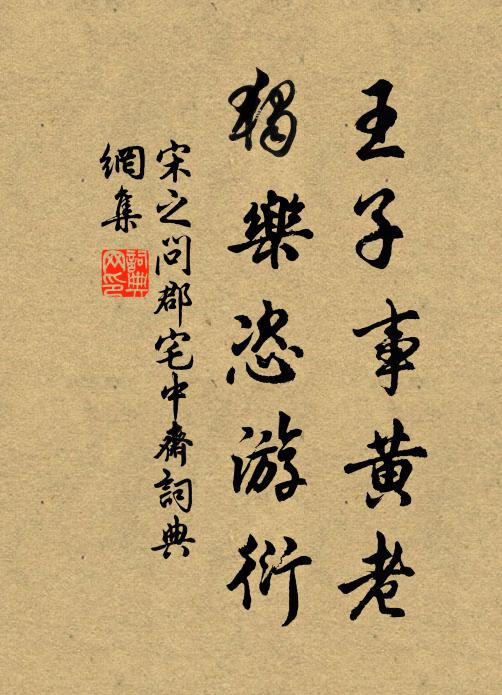 王子事黄老
獨樂恣游衍
宋之问郡宅中齋詞典
網集
詞典
网印